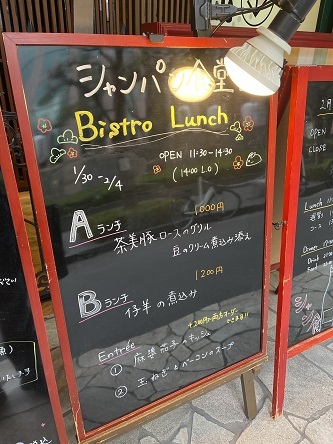 シャンパン食堂
Bistro Lunch
1/30 - 2/4
OPEN 11:30-14:30
(14:00 L.O)
Aランチ 1,000円
茶美豚ロースのグリル
豆のクリーム煮込み添え
Bランチ 1200円
仔羊の煮込み
Entrée
① 麻婆茄子のキッシュ
② 玉ねぎとベーコンのスープ
2月
OPEN
CLOSE
Lunch
Dinner